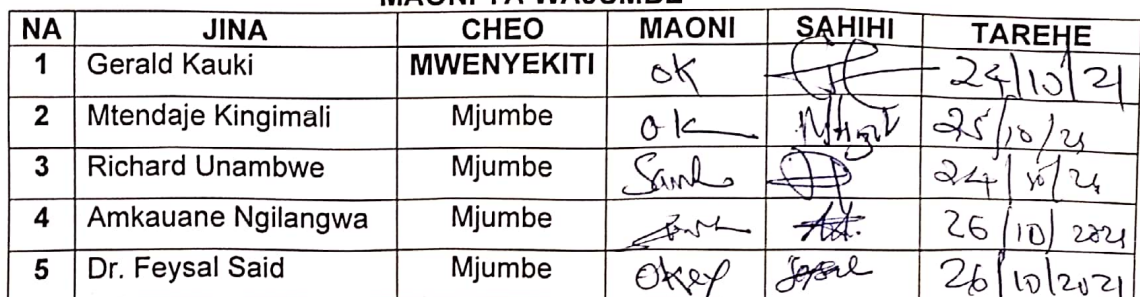 MAONI YA WAJUMBE
NA JINA CHEO MAONI SAHIHI TAREHE
1 Gerald Kauki MWENYEKITI ok 24/10/21
2 Mtendaje Kingimali Mjumbe ok 25/10/21
3 Richard Unambwe Mjumbe 24/10/21
4 Amkauane Ngilangwa Mjumbe 26/10/2021
5 Dr. Feysal Said Mjumbe Okey 26/10/2021